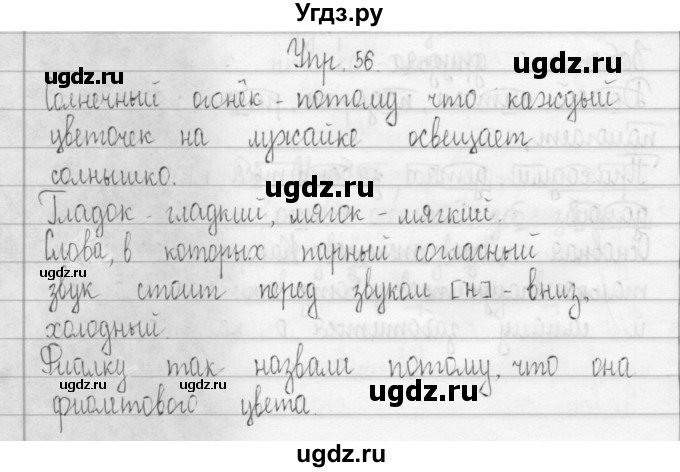 Угдз.ру
Упр. 56.
ugdz.ru
ugdz.ru
Солнечный огонёк - потому что каждый
цветочек на лужайке освещает
солнышко.
ugdz.ru
Гладок - гладкий, мягок - мягкий.
Слова, в которых парный согласный
ugdz.ru
ugdz.ru
звук стоит перед звуком [н] - вниз,
холодный.
Фиалку так назвали потому, что она
ugdz.ru
ugdz.ru
ugdz.ru
фиолетового цвета.
ugdz.ru